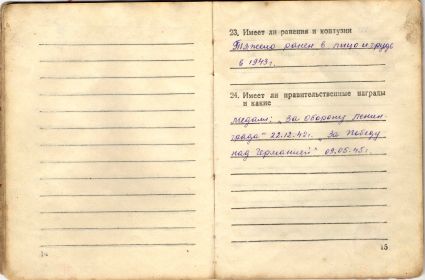 23. Имеет ли ранения и контузии
Тяжело ранен в лицо и грудь
в 1943 г.
24. Имеет ли правительственные награды
и какие
медали: „За оборону Ленин-
града" 22.12.42 г. „За Победу
над Германией" 09.05.45 г.
15